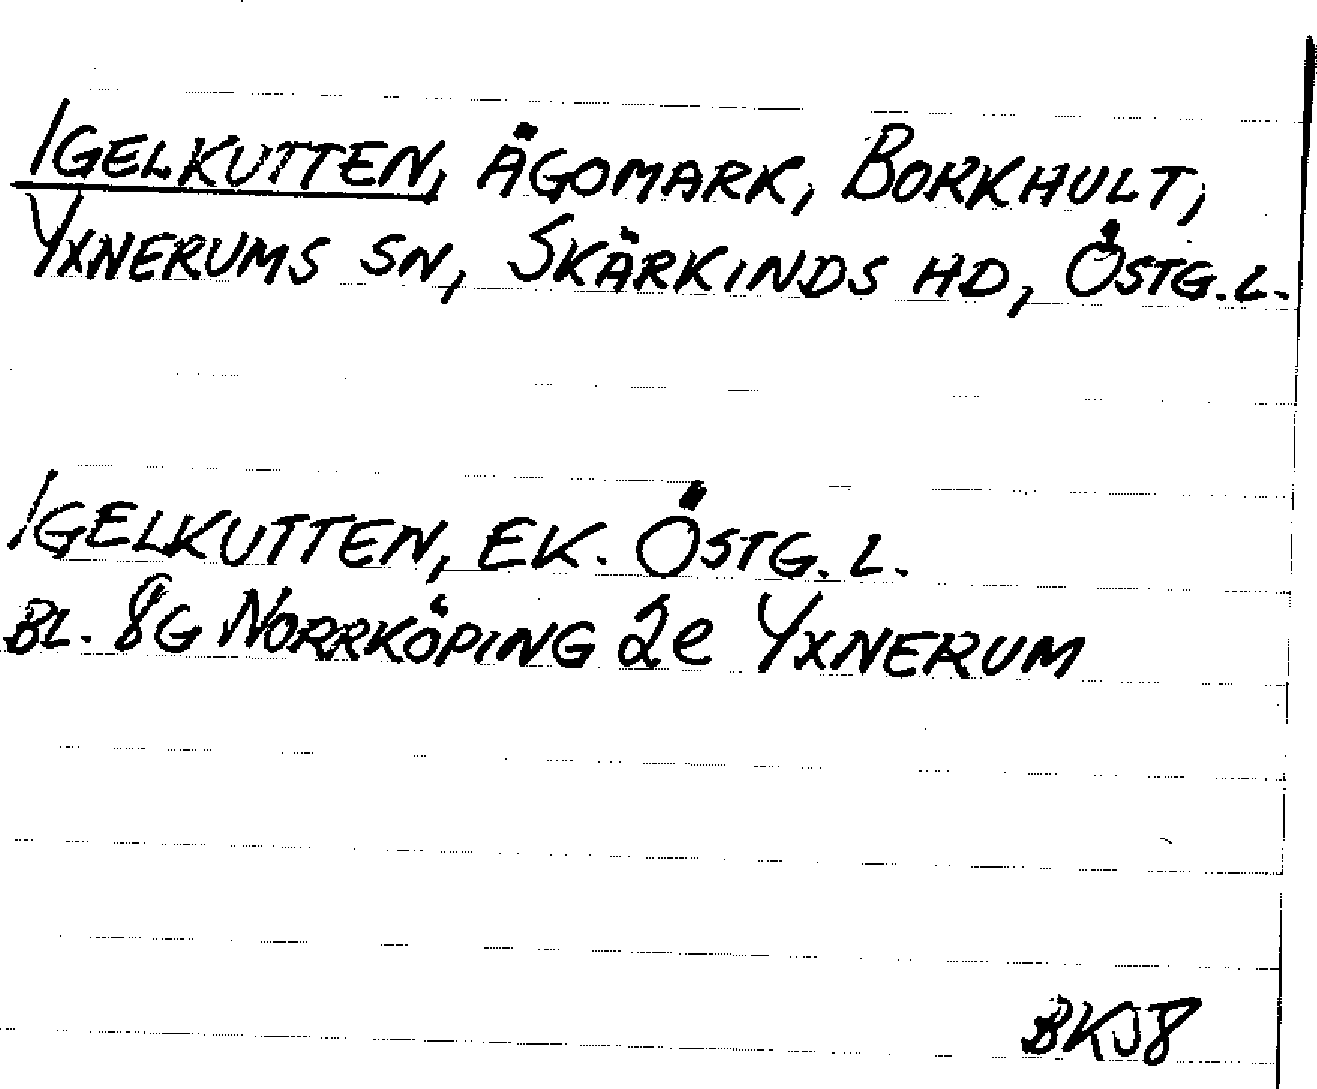 IGELKUTTEN, ÄGOMARK, BORKHULT,
YXNERUMS SN, SKÄRKINDS HD, ÖSTG. L.
IGELKUTTEN, EK. ÖSTG. L.
BL. 8G NORRKÖPING 2e YXNERUM